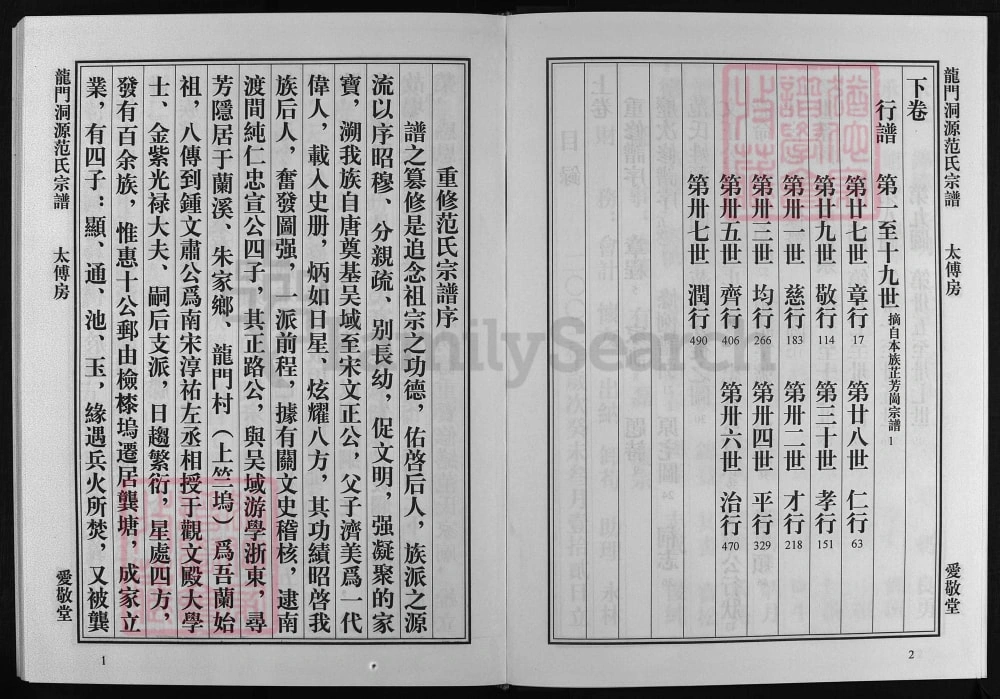 龍門洞源范氏宗譜 太傅房 愛敬堂
下卷
行譜 第一至十九世 摘自本族芷芳崗宗譜 1
第廿七世 章行 17 第廿八世 仁行 63
第廿九世 敬行 114 第三十世 孝行 151
第卅一世 慈行 183 第卅二世 才行 218
第卅三世 均行 266 第卅四世 平行 329
第卅五世 齊行 406 第卅六世 治行 470
第卅七世 潤行 490
2
重修范氏宗譜序
譜之篡修是追念祖宗之功德，佑啓后人，族派之源
流以序昭穆、分親疏、別長幼，促文明，强凝聚的家
寶，溯我族自唐奠基吴域至宋文正公，父子濟美爲一代
偉人，載入史册，炳如日星、炫耀八方，其功績昭啓我
族后人，奮發圖强，一派前程，據有關文史稽核，逮南
渡間純仁忠宣公四子，其正路公，與吴域游學浙東，尋
芳隱居于蘭溪、朱家鄉、龍門村（上竺塢）爲吾蘭始
祖，八傳到鍾文肅公爲南宋淳祐左丞相授于觀文殿大學
士、金紫光禄大夫、嗣后支派，日趨繁衍，星處四方，
發有百余族，惟惠十公郵由檢㯃塢遷居龔塘，成家立
業，有四子：顯、通、池、玉，緣遇兵火所焚，又被龔
龍門洞源范氏宗譜 太傅房 愛敬堂
1
FamilySearch